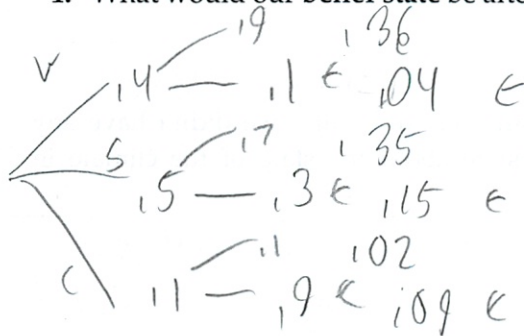 1. What would our belief state be after
.9 .36
V .4 .1 ← .04 ←
S .7 .35
.5 .3 ← .15 ←
.1 .02
C .1 .9 ← .09 ←